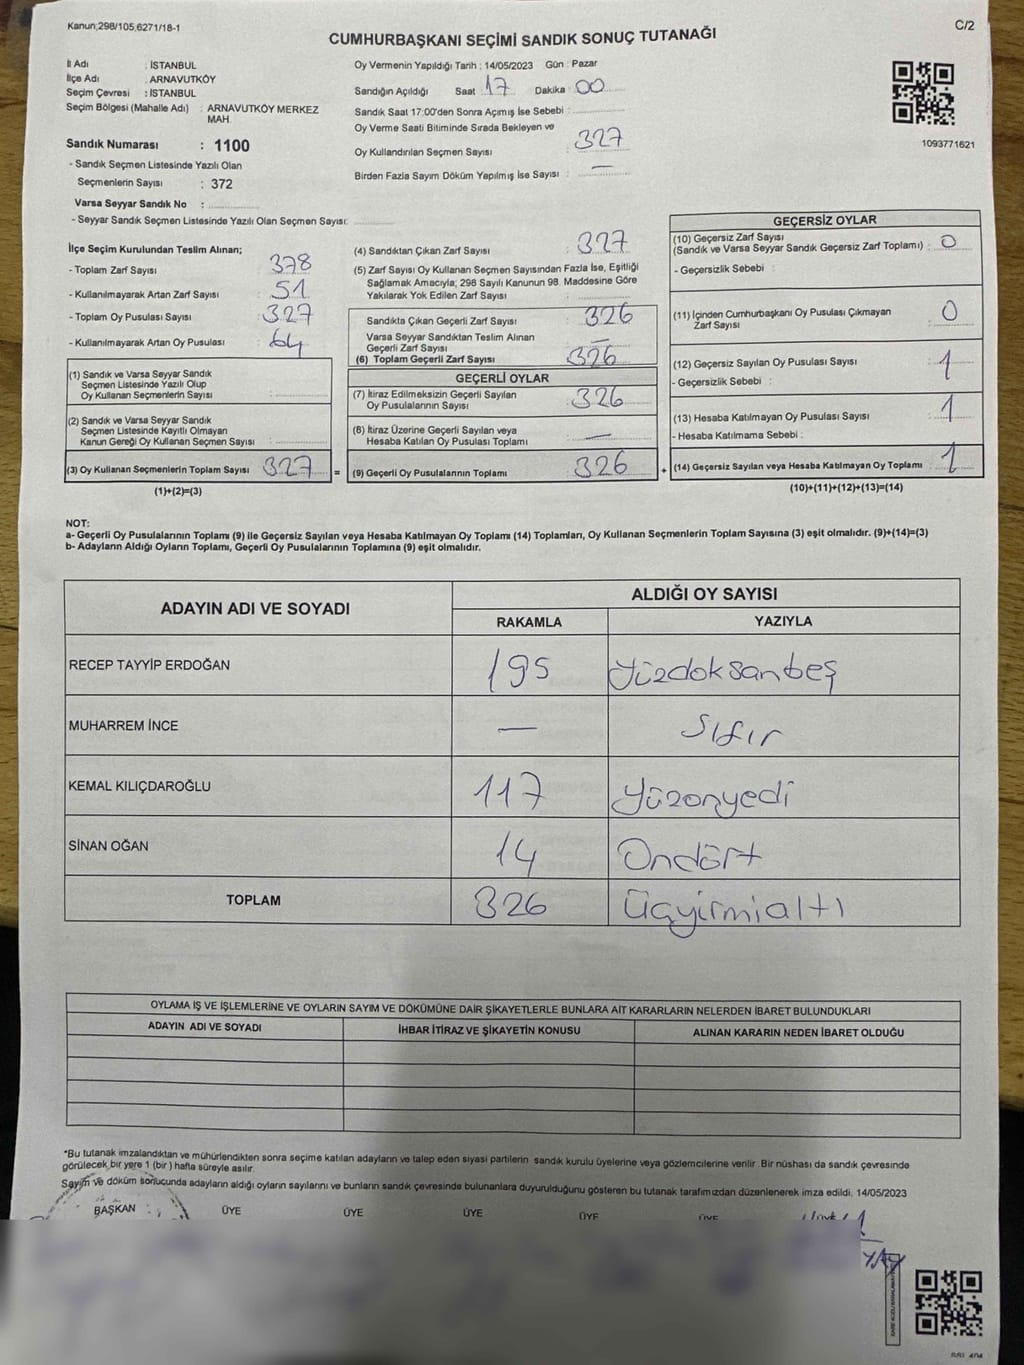 Kanun;298/105,6271/18-1
C/2
CUMHURBAŞKANI SEÇİMİ SANDIK SONUÇ TUTANAĞI
İl Adı : İSTANBUL
İlçe Adı : ARNAVUTKÖY
Seçim Çevresi : İSTANBUL
Seçim Bölgesi (Mahalle Adı) : ARNAVUTKÖY MERKEZ
MAH.
Sandık Numarası : 1100
- Sandık Seçmen Listesinde Yazılı Olan
Seçmenlerin Sayısı : 372
Varsa Seyyar Sandık No :
- Seyyar Sandık Seçmen Listesinde Yazılı Olan Seçmen Sayısı:
Oy Vermenin Yapıldığı Tarih : 14/05/2023 Gün : Pazar
Sandığın Açıldığı Saat 17 Dakika : 00
Sandık Saat 17:00'den Sonra Açımış İse Sebebi :
Oy Verme Saati Bitiminde Sırada Bekleyen ve
Oy Kullandırılan Seçmen Sayısı : 327
Birden Fazla Sayım Döküm Yapılmış İse Sayısı : —
1093771621
İlçe Seçim Kurulundan Teslim Alınan;
- Toplam Zarf Sayısı : 378
- Kullanılmayarak Artan Zarf Sayısı : 51
- Toplam Oy Pusulası Sayısı : 327
- Kullanılmayarak Artan Oy Pusulası : 64
(1) Sandık ve Varsa Seyyar Sandık
Seçmen Listesinde Yazılı Olup
Oy Kullanan Seçmenlerin Sayısı :
(2) Sandık ve Varsa Seyyar Sandık
Seçmen Listesinde Kayıtlı Olmayan
Kanun Gereği Oy Kullanan Seçmen Sayısı :
(3) Oy Kullanan Seçmenlerin Toplam Sayısı 327 =
(1)+(2)=(3)
(4) Sandıktan Çıkan Zarf Sayısı : 327
(5) Zarf Sayısı Oy Kullanan Seçmen Sayısından Fazla İse, Eşitliği
Sağlamak Amacıyla; 298 Sayılı Kanunun 98. Maddesine Göre
Yakılarak Yok Edilen Zarf Sayısı :
Sandıkta Çıkan Geçerli Zarf Sayısı : 326
Varsa Seyyar Sandıktan Teslim Alınan
Geçerli Zarf Sayısı : —
(6) Toplam Geçerli Zarf Sayısı : 326
GEÇERLİ OYLAR
(7) İtiraz Edilmeksizin Geçerli Sayılan
Oy Pusulalarının Sayısı : 326
(8) İtiraz Üzerine Geçerli Sayılan veya
Hesaba Katılan Oy Pusulası Toplamı : —
(9) Geçerli Oy Pusulalarının Toplamı : 326 +
GEÇERSİZ OYLAR
(10) Geçersiz Zarf Sayısı
(Sandık ve Varsa Seyyar Sandık Geçersiz Zarf Toplamı) : 0
- Geçersizlik Sebebi :
(11) İçinden Cumhurbaşkanı Oy Pusulası Çıkmayan
Zarf Sayısı : 0
(12) Geçersiz Sayılan Oy Pusulası Sayısı : 1
- Geçersizlik Sebebi :
(13) Hesaba Katılmayan Oy Pusulası Sayısı : 1
- Hesaba Katılmama Sebebi :
(14) Geçersiz Sayılan veya Hesaba Katılmayan Oy Toplamı : 1
(10)+(11)+(12)+(13)=(14)
NOT:
a- Geçerli Oy Pusulalarının Toplamı (9) ile Geçersiz Sayılan veya Hesaba Katılmayan Oy Toplamı (14) Toplamları, Oy Kullanan Seçmenlerin Toplam Sayısına (3) eşit olmalıdır. (9)+(14)=(3)
b- Adayların Aldığı Oyların Toplamı, Geçerli Oy Pusulalarının Toplamına (9) eşit olmalıdır.
ADAYIN ADI VE SOYADI
ALDIĞI OY SAYISI
RAKAMLA YAZIYLA
RECEP TAYYİP ERDOĞAN 195 Yüzdoksanbeş
MUHARREM İNCE — Sıfır
KEMAL KILIÇDAROĞLU 117 Yüzonyedi
SİNAN OĞAN 14 Ondört
TOPLAM 326 Üçyirmialtı
OYLAMA İŞ VE İŞLEMLERİNE VE OYLARIN SAYIM VE DÖKÜMÜNE DAİR ŞİKAYETLERLE BUNLARA AİT KARARLARIN NELERDEN İBARET BULUNDUKLARI
ADAYIN ADI VE SOYADI İHBAR İTİRAZ VE ŞİKAYETİN KONUSU ALINAN KARARIN NEDEN İBARET OLDUĞU
*Bu tutanak imzalandıktan ve mühürlendikten sonra seçime katılan adayların ve talep eden siyasi partilerin sandık kurulu üyelerine veya gözlemcilerine verilir. Bir nüshası da sandık çevresinde
görülecek bir yere 1 (bir) hafta süreyle asılır.
Sayım ve döküm sonucunda adayların aldığı oyların sayılarını ve bunların sandık çevresinde bulunanlara duyurulduğunu gösteren bu tutanak tarafımızdan düzenlenerek imza edildi. 14/05/2023
BAŞKAN ÜYE ÜYE ÜYE ÜYE ÜYE